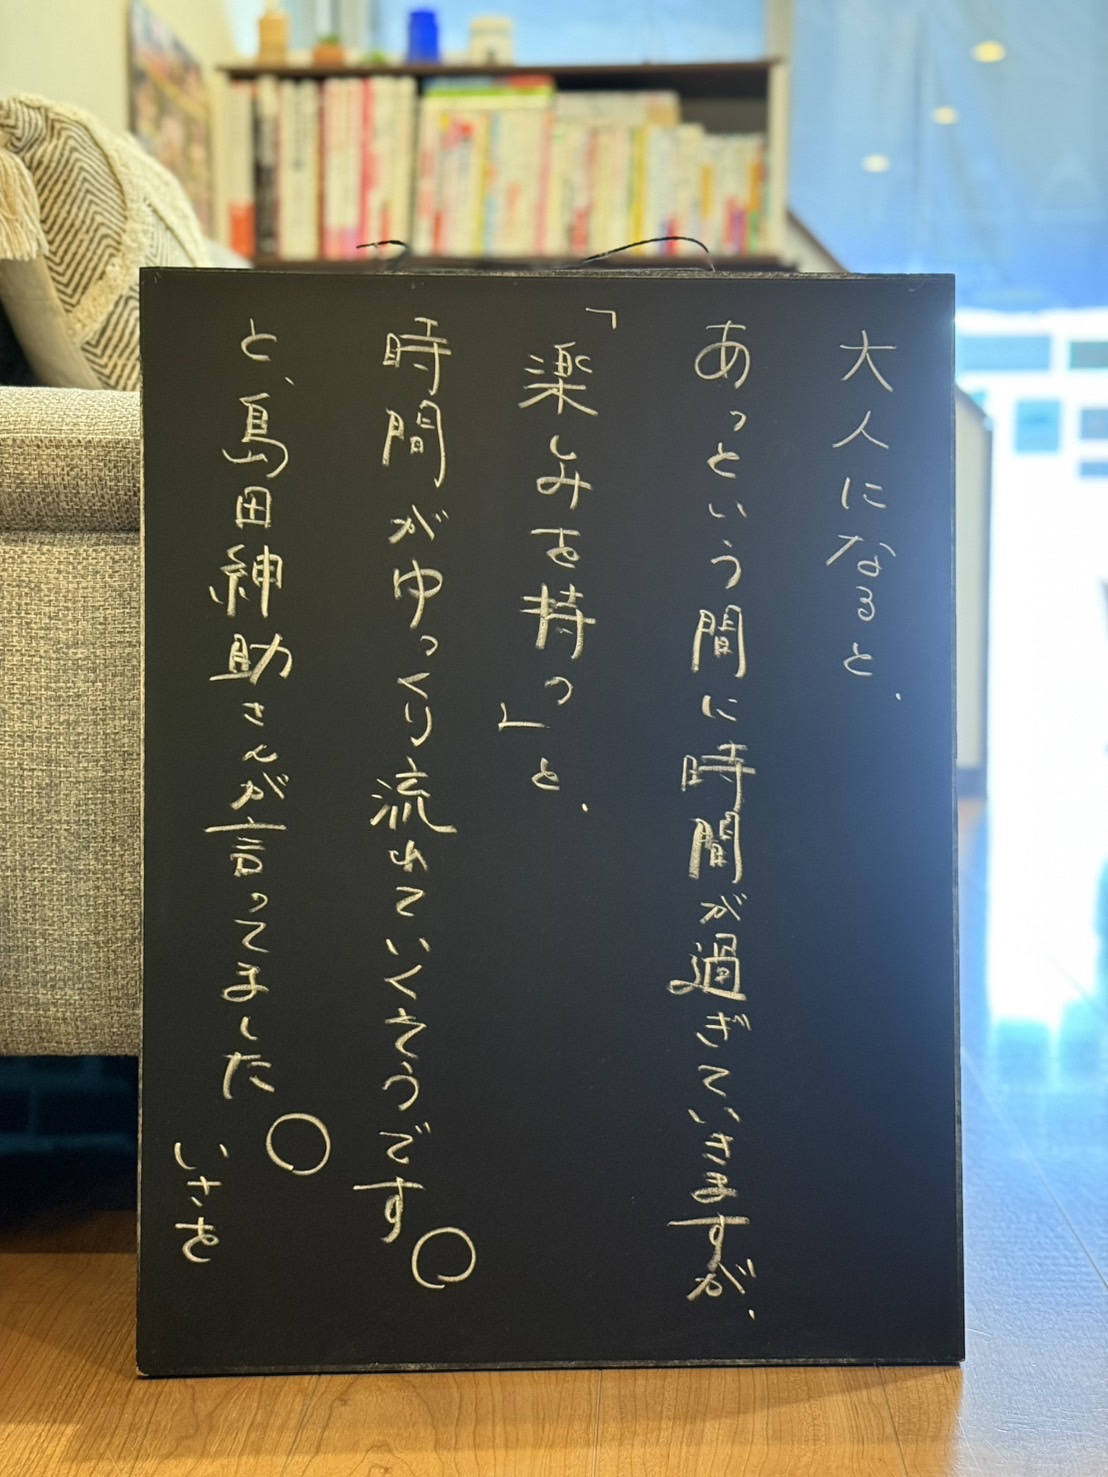 大人になると、
あっという間に時間が過ぎていきますが、
「楽しみを持つ」と、
時間がゆっくり流れていくそうです。
と、島田紳助さんが言ってました。
いさを